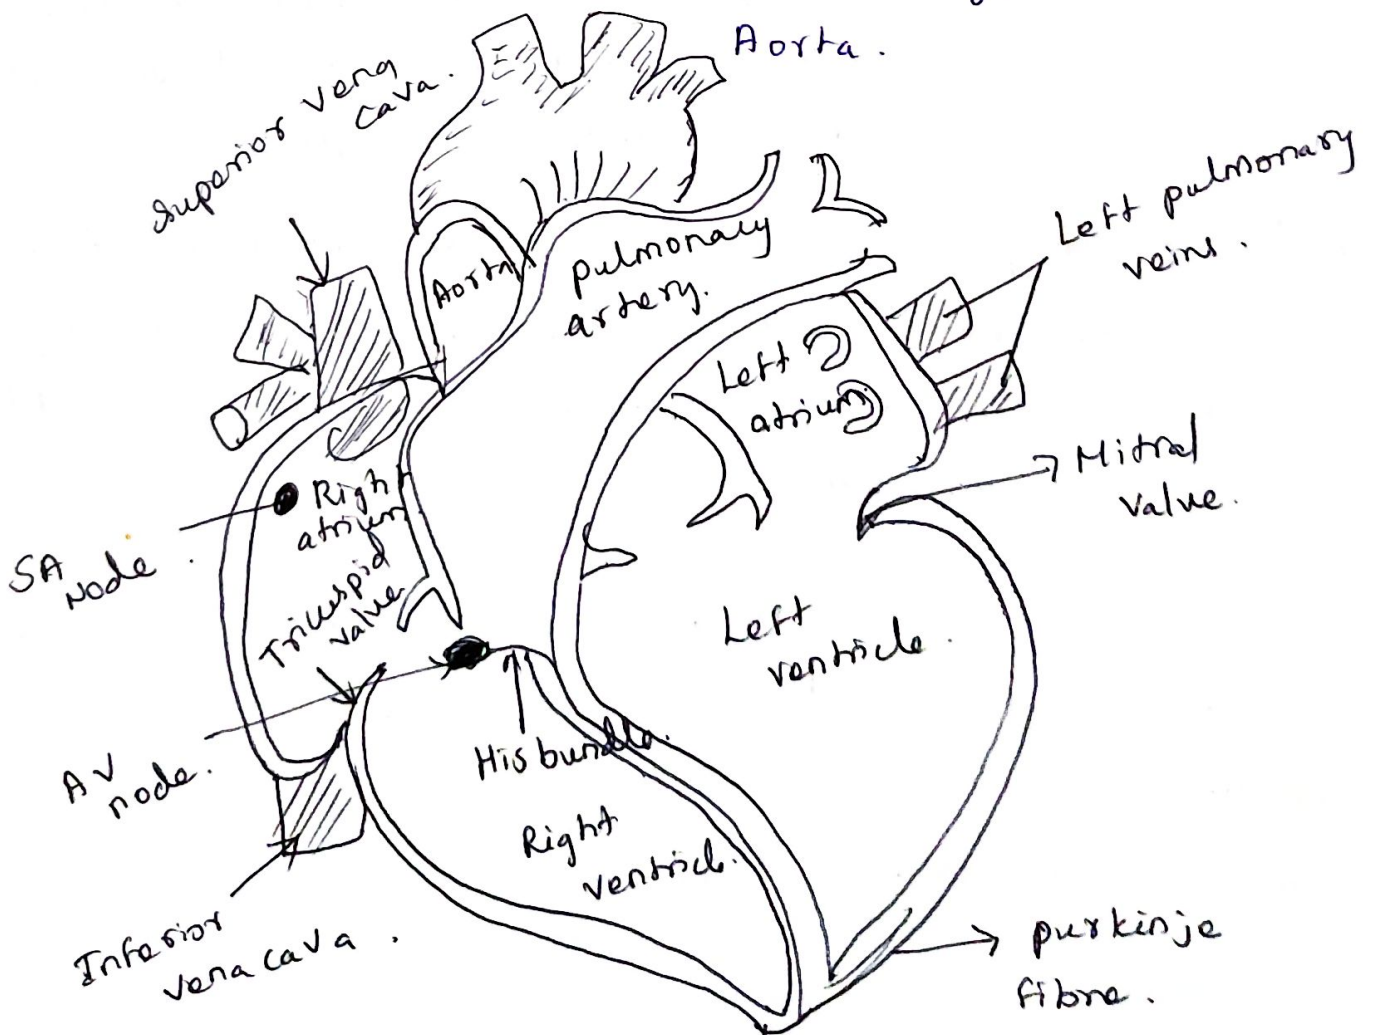 Aorta.
Superior vena
cava.
Left pulmonary
veins.
Aorta
pulmonary
artery.
Left
atrium
Mitral
valve.
Right
atrium
SA
Node.
Tricuspid
valve
Left
ventricle.
AV
node.
His bundle.
Right
ventricle.
Inferior
vena cava.
purkinje
fibre.